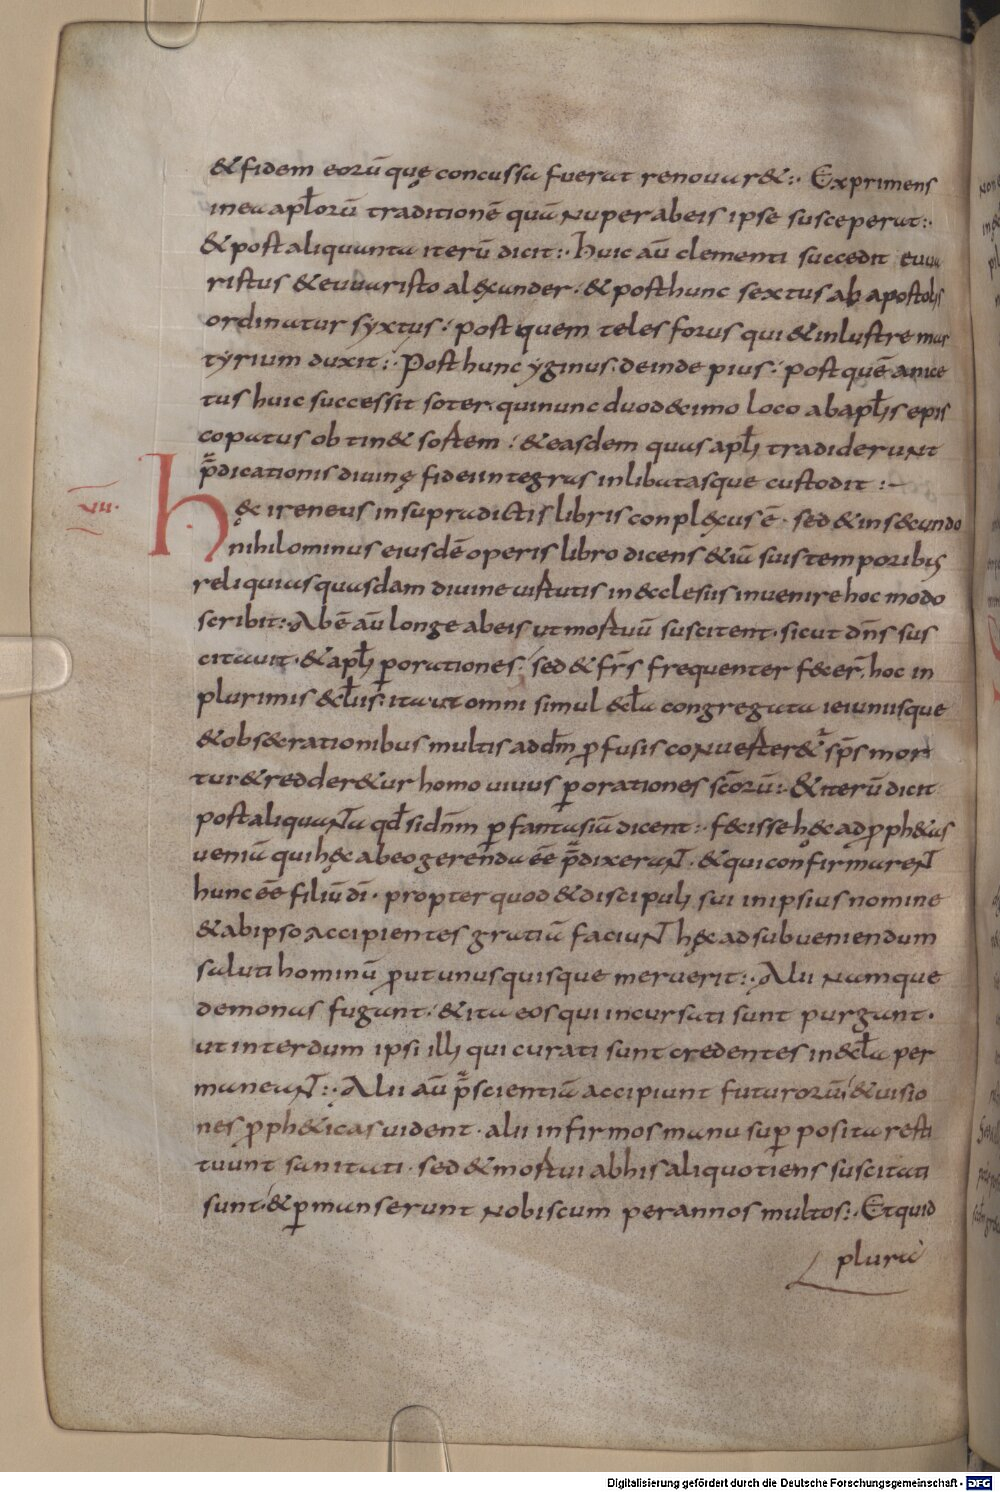 & fidem eorū quę concussa fuerat renouar&:· Exprimens
in ea apłorū traditionē quā nuper ab eis ipse susceperat:·
& post aliquanta iterū dicit:· Huic aū clementi succedit eua
ristus & euuaristo alęxander· & post hunc sextus ab apostolis
ordinatur syxtus· post quem telesforus qui & inlustre mar
tyrium duxit:· Post hunc yginus· deinde pius· post quē anice
tus huic successit soter· qui nunc duodecimo loco ab apłis epis
copatus obtin& sortem· & easdem quas apłi tradiderunt
p̄dicationis diuinę fidei integras inlibatasque custodit:–
VII.
Hęc ireneus in supradictis libris conplęcus ē· sed & in s&cundo
nihilominus eiusdē operis libro dicens &iā suis temporibus
reliquias quasdam diuine uirtutis in &cclesiis inuenire hoc modo
scribit:· Abē aū longe ab eis ut mortuū suscitent· sicut dn̄s sus
citauit· & apłi ꝑ orationes· sed & fr̄s frequenter fecer̄ hoc in
plurimis &cłiis· ita ut omni simul &cła congregata ieiuniisque
& obs&crationibus multis ad dm̄ ꝓfusis conuerter& sp̄s mor
tui & redder&ur homo uiuus ꝑ orationes sc̄orū:· & iterū dicit
post aliquanta qđ si dn̄m ꝑ fantasiā dicent:· fecisse hęc ad ꝓph&as
ueniā qui hęc ab eo gerenda ēē p̄dixerant· & qui confirmarent
hunc ēē filiū dī· propter quod & discipuli sui in ipsius nomine
& ab ipso accipientes gratiā faciunt hęc ad subueniendum
saluti hominū ꝓut unusquisque meruerit:· Alii namque
demonas fugant· & ita eos qui incursati sunt purgant·
ut interdum ipsi illi qui curati sunt credentes in &cła per
maneant:· Alii aū p̄scientiā accipiunt futurorū & uisio
nes ꝓph&icas uident· alii infirmos manu suꝑposita resti
tuunt sanitati· sed & mortui ab his aliquotiens suscitati
sunt· & ꝑmanserunt nobiscum per annos multos:· Et quid
plura
Digitalisierung gefördert durch die Deutsche Forschungsgemeinschaft - DFG